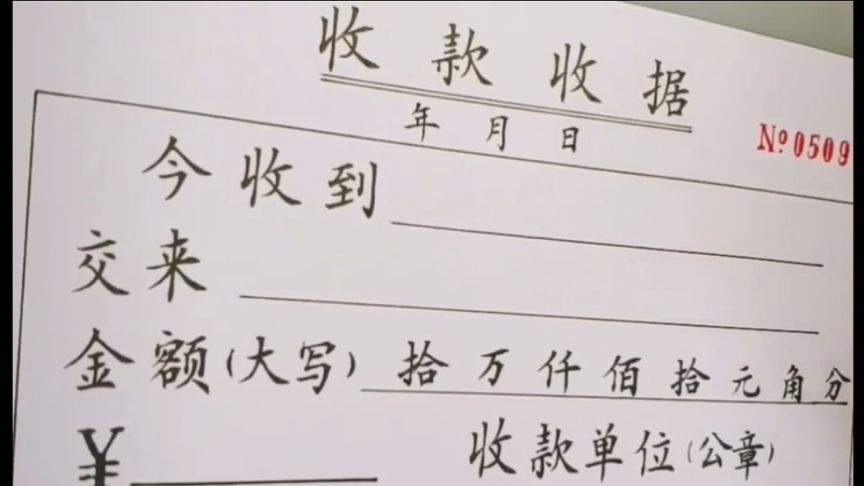 收款收据
年 月 日
№0509
今收到
交来
金额(大写) 拾万仟佰拾元角分
¥ 收款单位(公章)